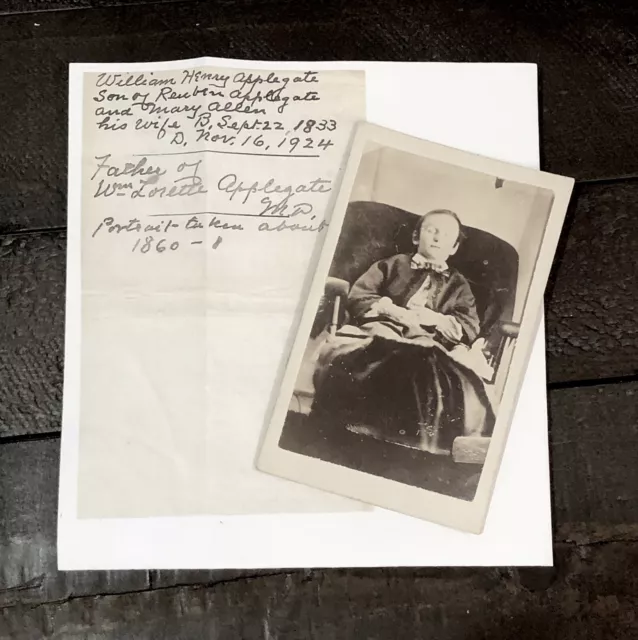 William Henry Applegate
Son of Reuben Applegate
and Mary Allen
his wife B. Sept. 22, 1833
D. Nov. 16, 1924
Father of
Wm Lorette Applegate
M.D.
Portrait taken about
1860 - 1